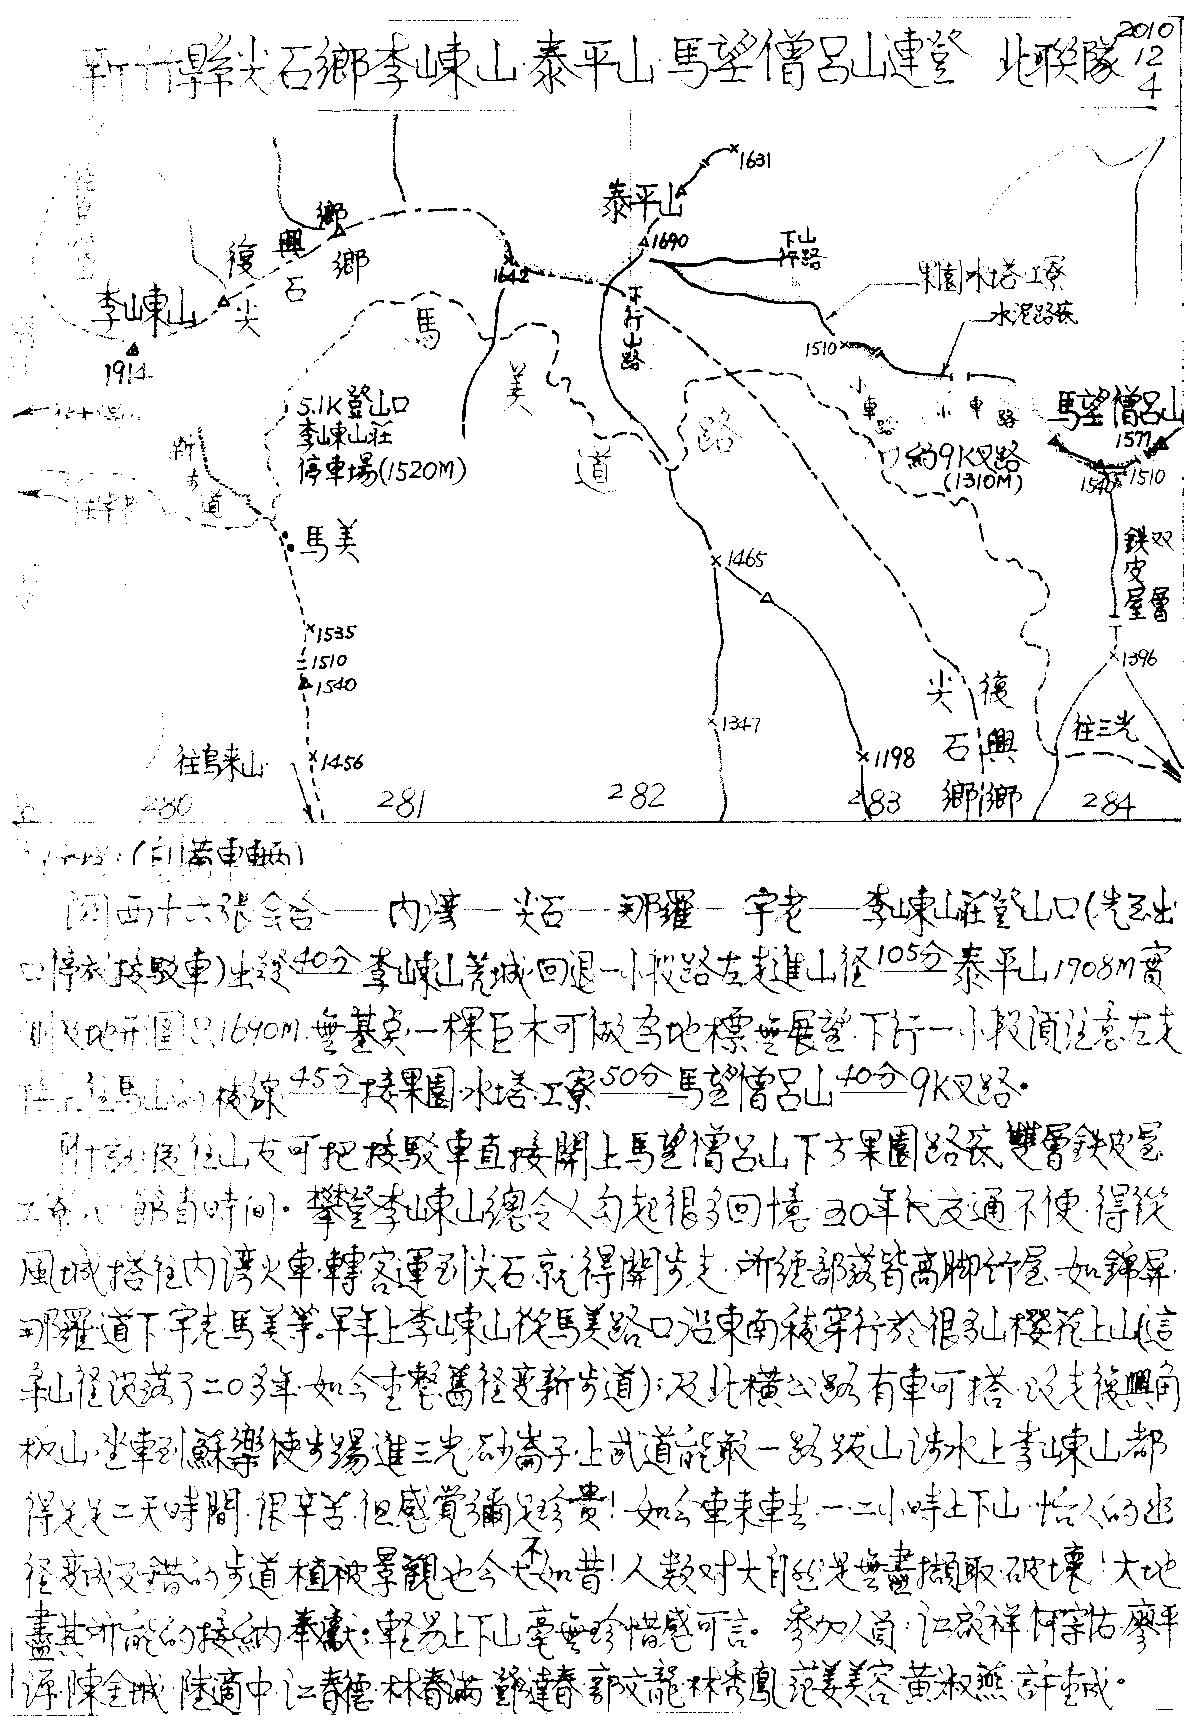 新竹縣尖石鄉李崠山·泰平山·馬望僧呂山連登 北聯隊 2010
12
4
1631
泰平山
1690
下山
行路
果園水塔·工寮
水泥路底
復興鄉
尖石鄉
1642
李崠山
1914
馬美道路
下行山路
1510
小車路
小車路
馬望僧呂山
1577
1540
1510
5.1K登山口
李崠山莊
停車場(1520M)
約9K叉路
(1310M)
新步道
馬美
鉄皮屋
双層
1465
1535
1510
1540
1396
1347
1456
1198
往烏來山
尖石鄉
復興鄉
往三光
280 281 282 283 284
(自備車輛)
關西十六張会合——內灣——尖石——那羅——宇老——李崠山莊登山口(先至出
口停放接駁車)出發40分李崠山荒城·回退一小段路左走進山徑105分泰平山1708M實
測及地形圖1690M·無基点·一棵巨木可做為地標無展望·下行一小段須注意左走
馬山的稜線45分接果園·水塔·工寮50分馬望僧呂山40分9K叉路·
附註:後往山友可把接駁車直接開上馬望僧呂山下方果園路底雙層鉄皮屋
工寮 節省時间。攀登李崠山總令人勾起很多回憶·30年代交通不便·得從
風城搭往內湾火車·轉客運到尖石·就得開步走·所經部落皆高脚竹屋·如錦屏·
那羅·道下·宇老·馬美等。早年上李崠山從馬美路口沿東南稜穿行於很多山櫻花上山(這
条山徑沒落了二0多年·如今重整舊徑變新步道);及北橫公路有車可搭·改走復興角
板山·坐車到蘇樂使步踢進三光·砂崙子·上武道能敢一路跋山涉水上李崠山都
得足足二天時間·很辛苦·但感覺彌足珍貴!如今車來車去·一·二小時上下山·怡人的
徑變成交錯的步道·植被景觀也今也不如昔!人数对大自然是無盡擷取·破壞!大地
盡其所能的接納·奉獻;輕易上下山毫無珍惜感可言。參加人員·江啟祥·阿宗佑·廖平
源·陳全城·陸適中·江春德·林春滿·鄧達春·郭文龍·林秀鳳·范姜美容·黃淑燕·許金城。